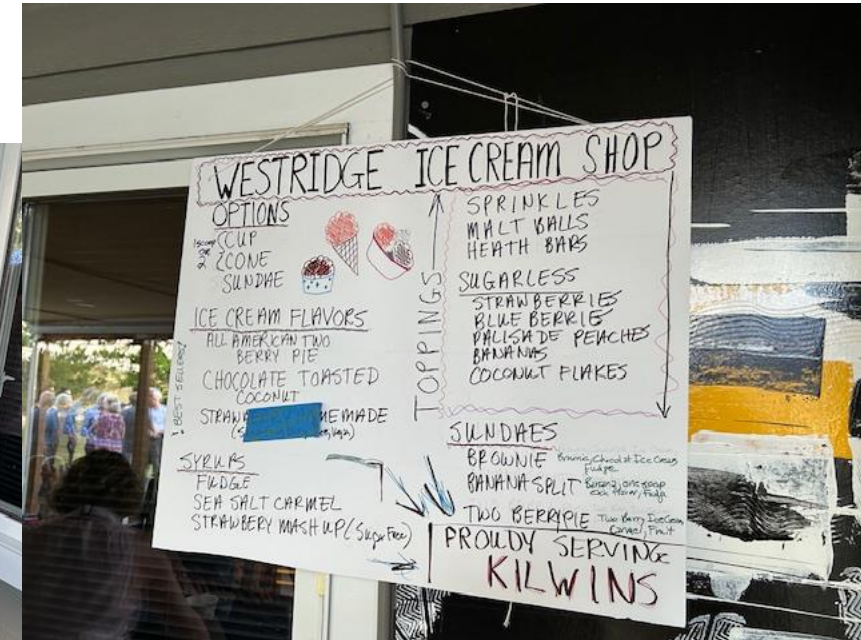 WESTRIDGE ICE CREAM SHOP
OPTIONS
1 scoop
OR
2
CUP
CONE
SUNDAE
ICE CREAM FLAVORS
ALL AMERICAN TWO
BERRY PIE
CHOCOLATE TOASTED
COCONUT
STRAW MEMADE
! BEST SELLERS!
SYRUPS
FUDGE
SEA SALT CARMEL
STRAWBERY MASH UP (Sugar Free)
TOPPINGS
SPRINKLES
MALT BALLS
HEATH BARS
SUGARLESS
STRAWBERRIES
BLUEBERRIES
PALISADE PEACHES
BANANAS
COCONUT FLAKES
SUNDAES
BROWNIE Ice Cream
fudge
BANANA SPLIT Banana, one scoop
each flavor, Fudge
TWO BERRY PIE Two Berry Ice Cream
Caramel, Fruit
PROUDY SERVING
KILWINS